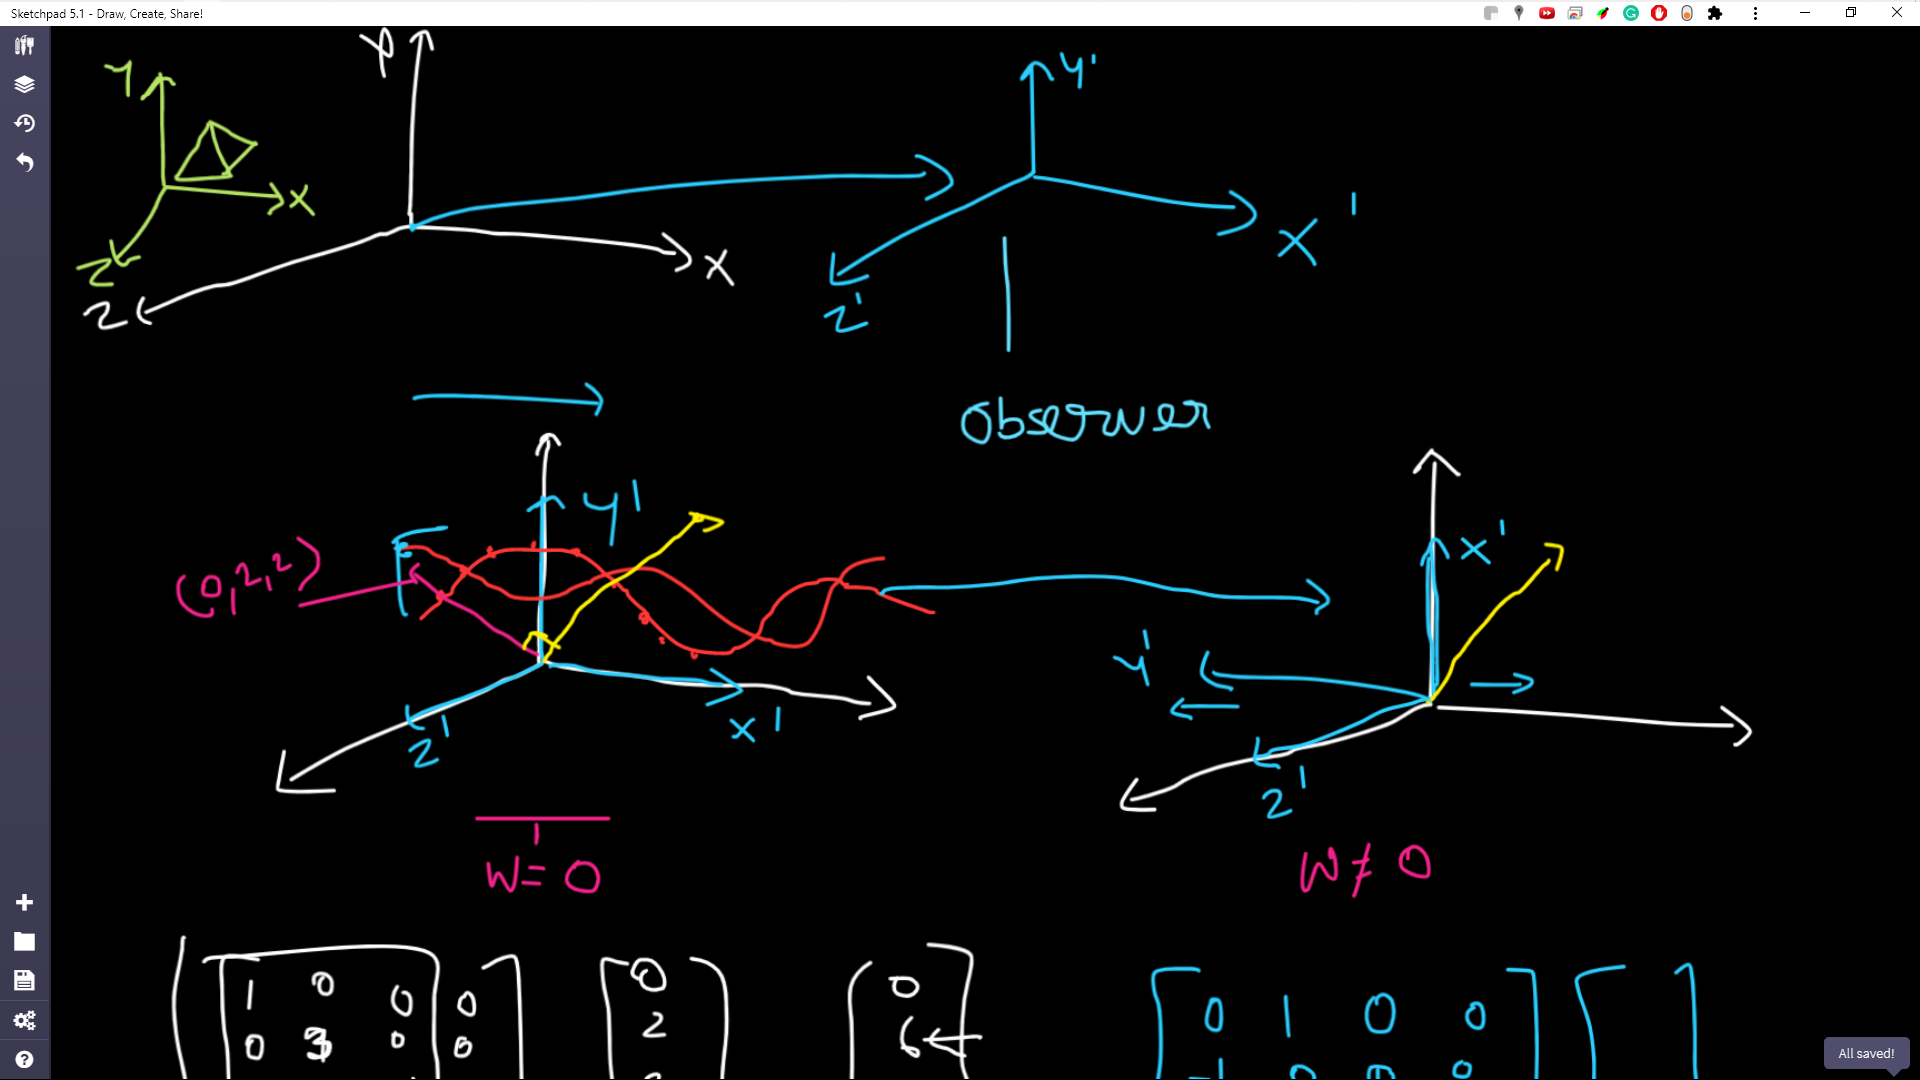 Sketchpad 5.1 - Draw, Create, Share!
Y
Y
Y'
X
X
X'
Z
Z
Z'
Observer
Y'
X'
(0,2,2)
Y'
X'
Z'
Z'
W = 0
W ≠ 0
1 0 0 0
0 3 0 0
0
2
0
6
0 1 0 0
-1 0 0 0
All saved!